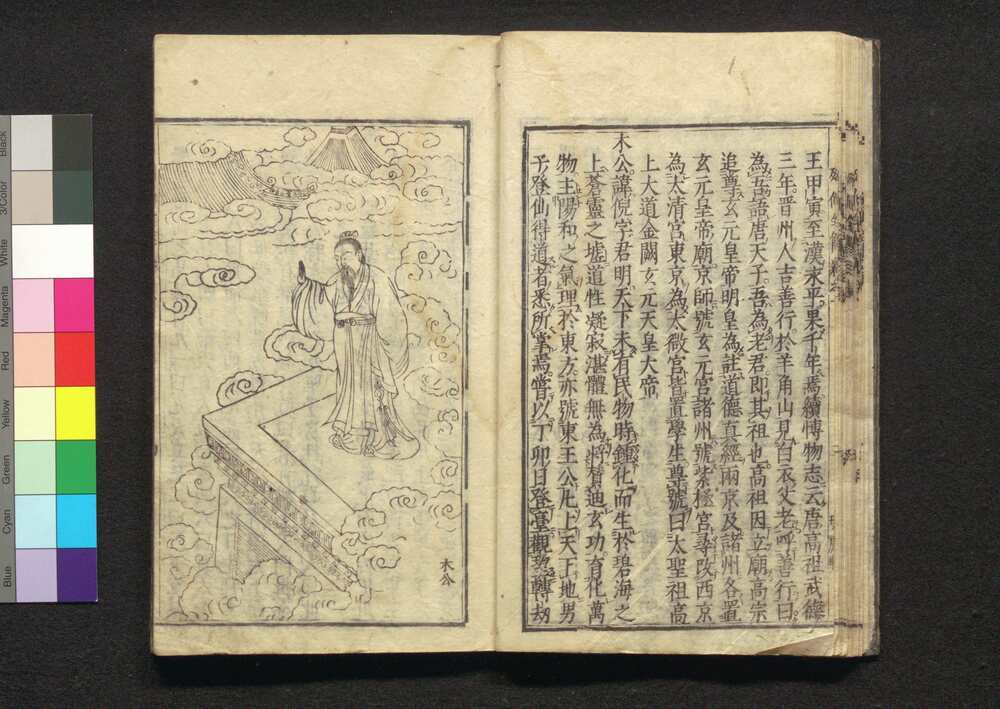 王甲寅至漢永平果千年焉續博物志云唐高祖武德
三年晉州人吉善行於羊角山見白衣父老呼善行曰
為吾語唐天子吾為老君即其祖也高祖因立廟高宗
追尊玄元皇帝明皇為註道德真經兩京及諸州各置
玄元皇帝廟京師號玄元宮諸州號紫極宮尋改西京
為太清宮東京為太微宮皆置學生尊號曰太聖祖高
上大道金闕玄元天皇大帝
木公諱倪字君明天下未有民物時鍾化而生於碧海之
上蒼靈之墟道性凝寂湛體無為將贊迪玄功育化萬
物主陽和之氣理於東方亦號東王公凡上天下地男
子登仙得道者悉所掌焉嘗以丁卯日登臺觀望轉劫
木公
Black
3/Color
White
Magenta
Red
Yellow
Green
Cyan
Blue